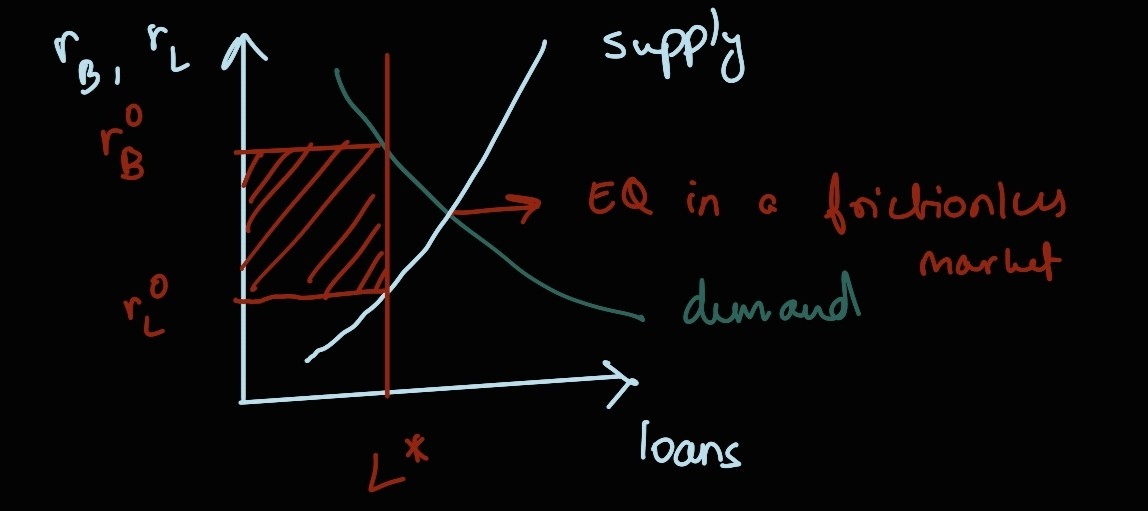 r_B, r_L
supply
r_B^0
EQ in a frictionless
market
r_L^0
demand
loans
L*